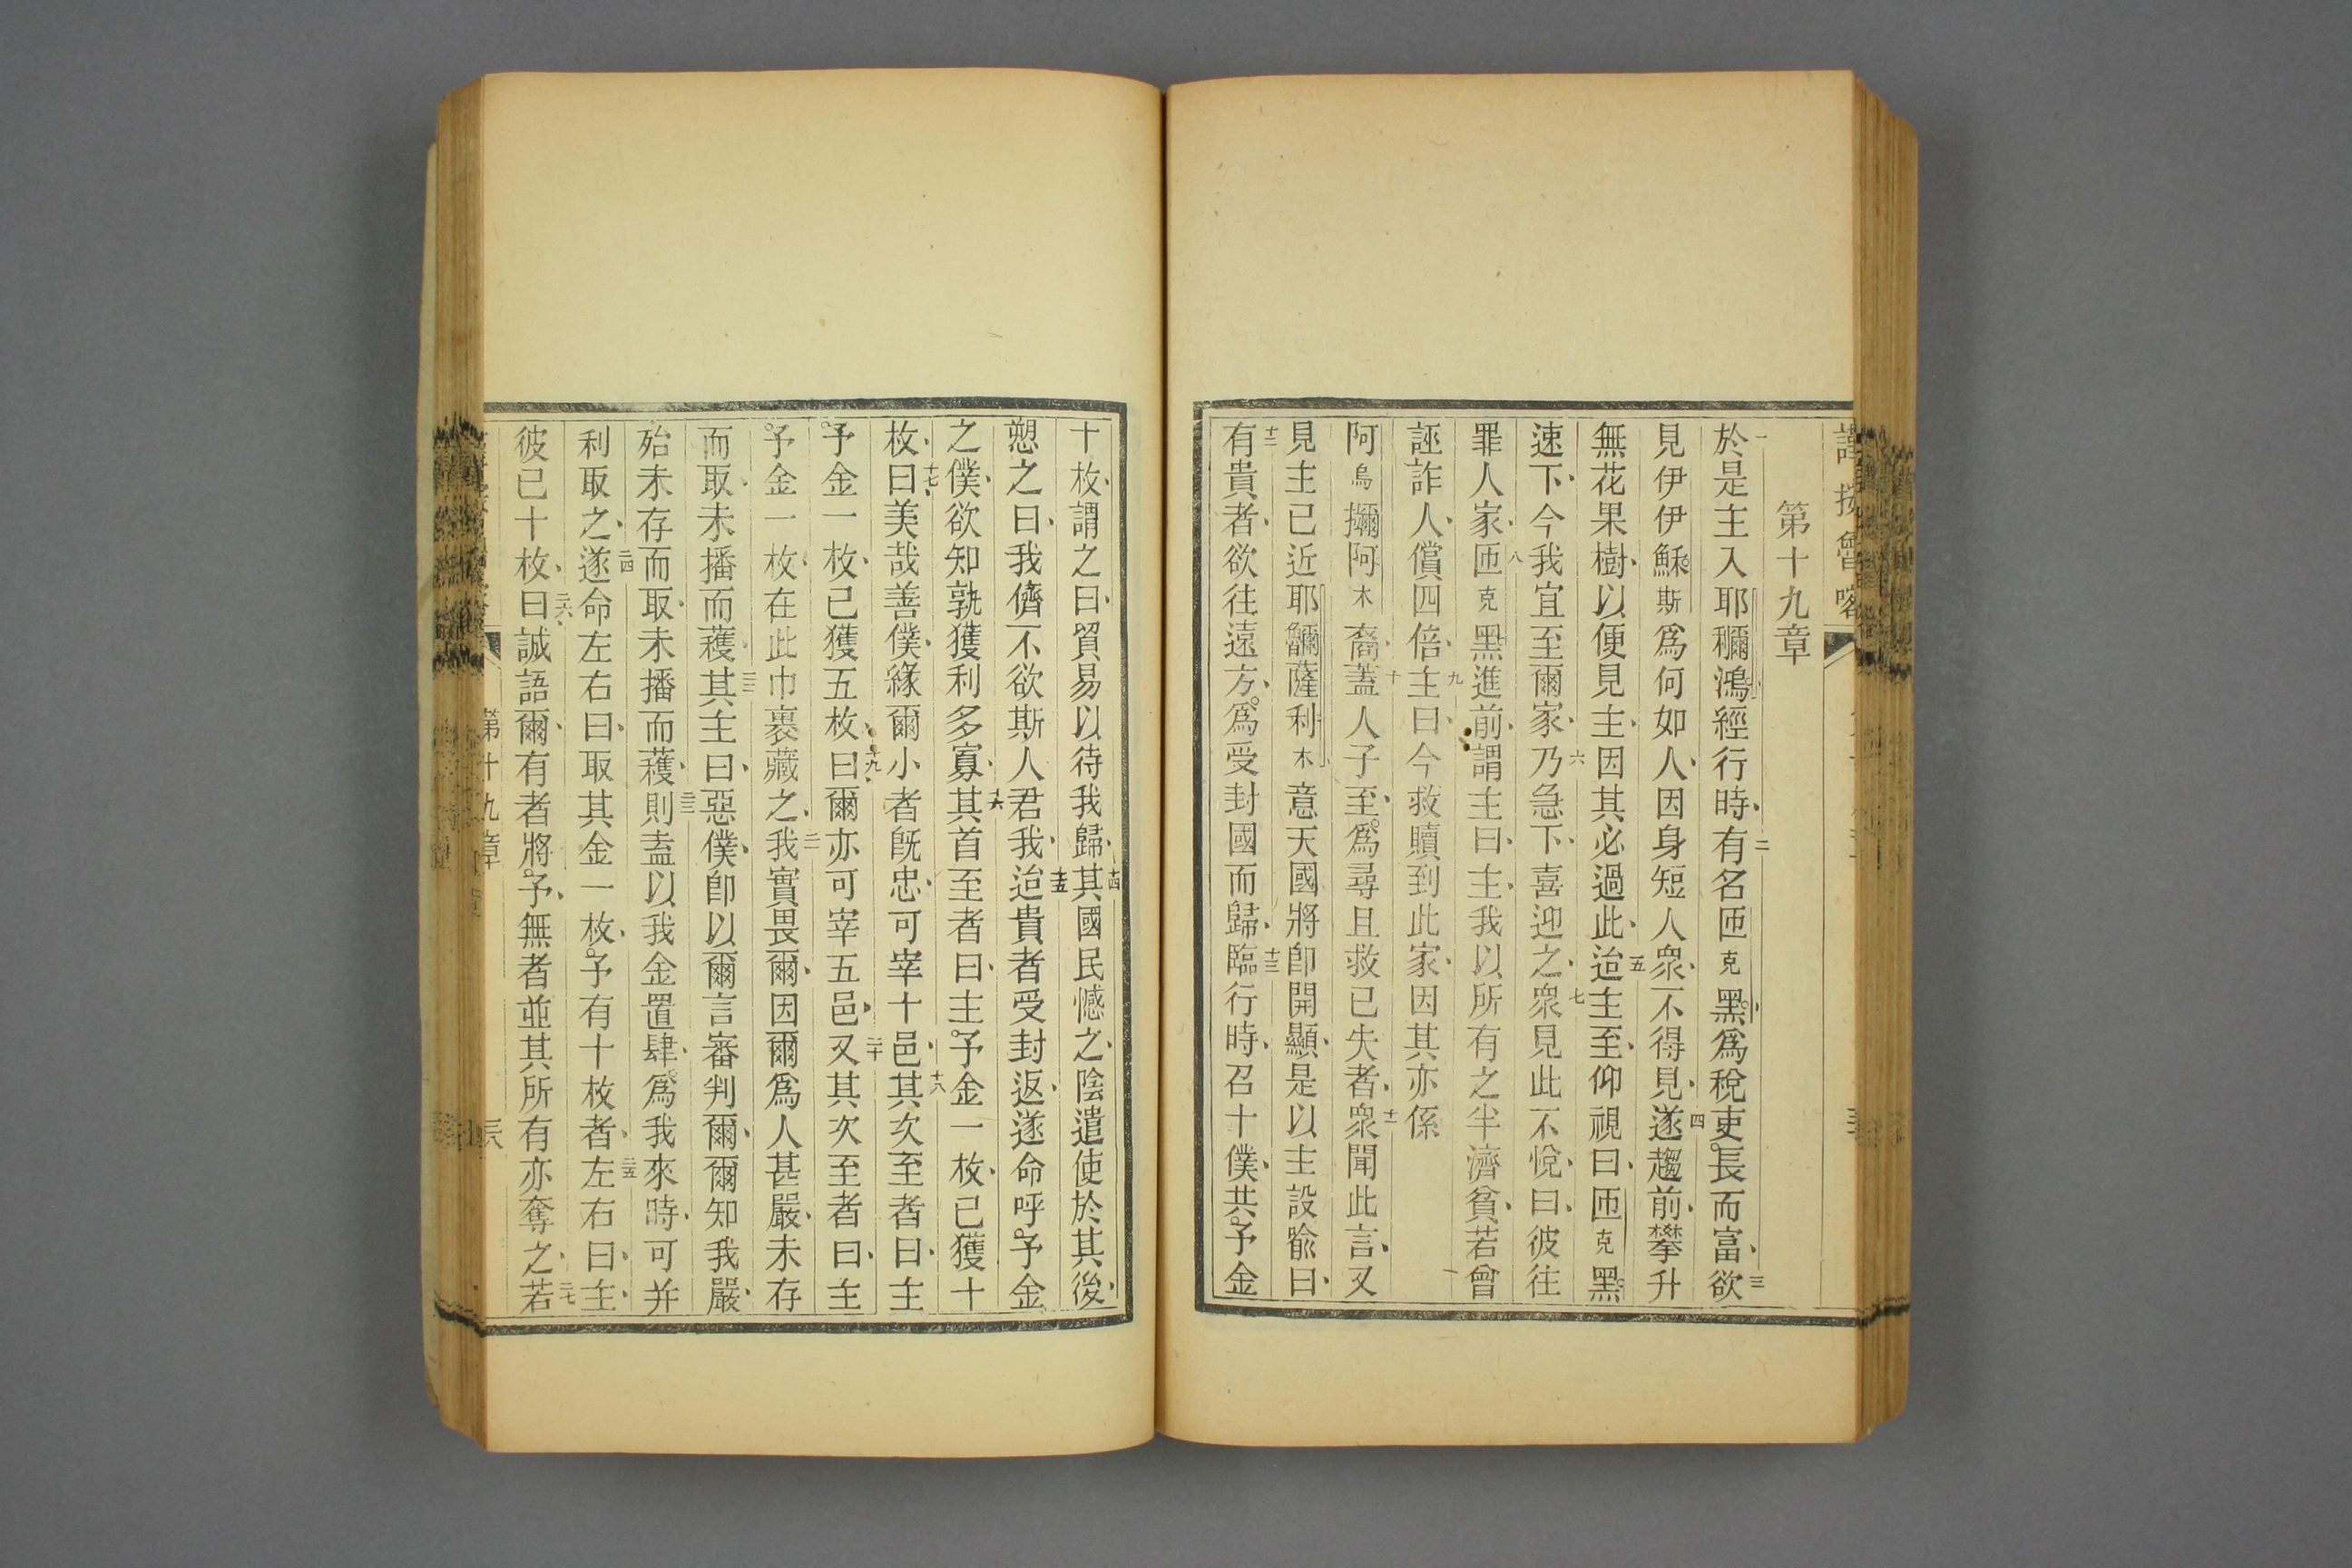 第十九章
一於是主入耶穪鴻經行時、二有名匝克黑爲稅吏長而富、三欲
見伊伊穌斯爲何如人、因身短人衆、不得見、四遂趨前、攀升
無花果樹、以便見主、因其必過此、五迨主至、仰視曰、匝克黑
速下、今我宜至爾家、六乃急下、喜迎之、七衆見此不悅、曰、彼往
罪人家、八匝克黑進前、謂主曰、主、我以所有之半濟貧、若曾
誣詐人、償四倍、九主曰、今救贖到此家、因其亦係
阿烏擟阿木裔、十蓋人子至、爲尋且救已失者、十一衆聞此言、又
見主已近耶𩫟薩利木、意天國將卽開顯、是以主設喩曰、
十二有貴者、欲往遠方、爲受封國而歸、十三臨行時、召十僕、共予金
十枚、謂之曰、貿易以待我歸、十四其國民憾之、陰遣使於其後、
愬之曰、我儕不欲斯人君我、十五迨貴者受封返、遂命呼予金
之僕、欲知孰獲利多寡、十六其首至者曰、主、予金一枚、已獲十
枚、十七曰、美哉善僕、緣爾小者旣忠、可宰十邑、十八其次至者曰、主
予金一枚、已獲五枚、十九曰、爾亦可宰五邑、二十又其次至者曰、主
予金一枚、在此巾裹藏之、二一我實畏爾、因爾爲人甚嚴、未存
而取、未播而穫、二二其主曰、惡僕、卽以爾言審判爾、爾知我嚴、
殆未存而取、未播而穫、二三則盍以我金置肆、爲我來時、可并
利取之、二四遂命左右曰、取其金一枚、予有十枚者、二五左右曰、主、
彼已十枚、二六曰、誠語爾、有者將予、無者並其所有亦奪之、二七若
第十九章